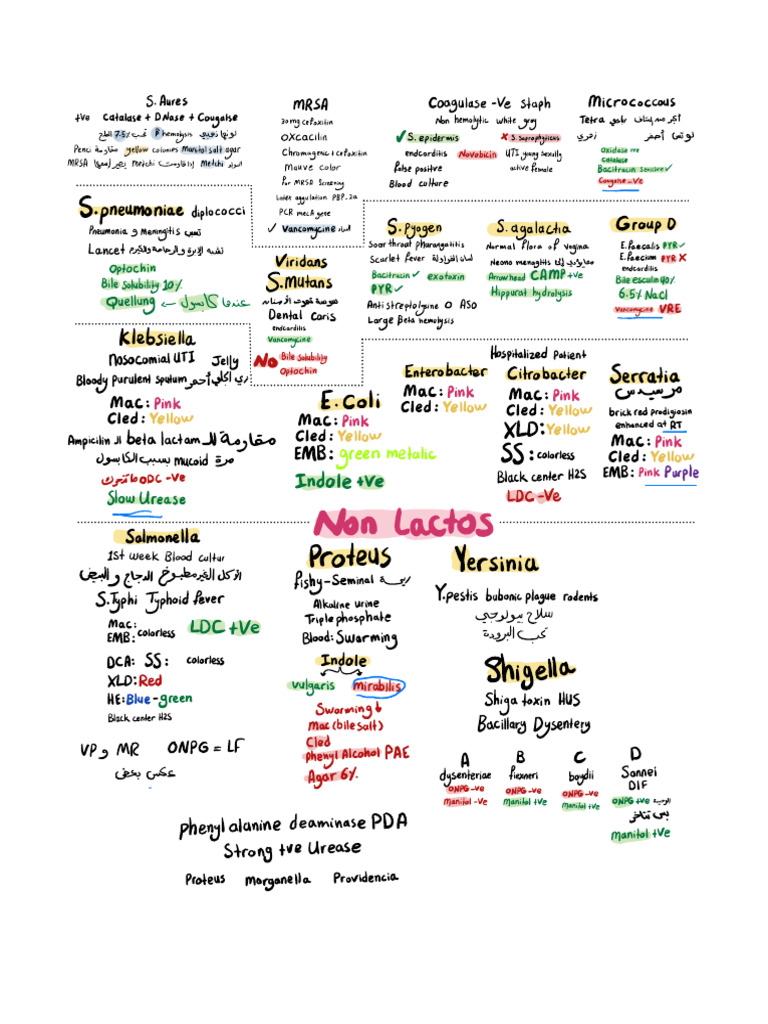 S. Aures
+ve Catalase + DNase + Cougalse
لونها ذهبي β hemolysis تحب 7.5% الملح
Penci مقاومة yellow colonies Manitol salt agar
MRSA
30mg cefoxitin
Oxcacilin
Chromagenic + Cefoxitin
Mauve color
for MRSA Screening
Latex aggulation PBP.2a
PCR mecA gene
✓ Vancomycine
Coagulase -Ve staph
Non hemolytic white grey
✓ S. epidermis
endcarditis
false positve
Blood culture
Novobicin
✗ S. Saprophyticus
UTI young sexually
active female
Micrococcous
Tetra رباعي
لونهم أصفر
Oxidase +ve
Catalase
Bacitracin sensitive ✓
Cougalse -Ve
S.pneumoniae diplococci
Pneumonia و Meningitis تسبب
Lancet
Optochin
Bile Solubility 10%
Quellung ← عندها كابسول
Viridans
S.Mutans
Dental Caris
endcarditis
Vancomycine
No Bile solubility
Optochin
S.pyogen
Soar throat pharangaitits
Scarlet fever لسان الفراولة
Bacitracin ✓ exotoxin
PYR ✓
Anti streptolysine O ASO
Large Beta hemolysis
S. agalactia
Normal flora of vagina
Arrow head CAMP +ve
Hippurat hydrolysis
Group D
E.Faecalis PYR ✓
E.Faecium PYR ✗
endcarditis
Bile esculin 40%
6.5% Nacl
Vancomycine VRE
Klebsiella
Nosocomial UTI Jelly
Bloody purulent sputum أحمر
Mac: Pink
Cled: Yellow
Ampicilin ال beta lactam مقاومة لل
مرة mucoid بسبب الكابسول
ODC -Ve
Slow Urease
E.Coli
Mac: Pink
Cled: Yellow
EMB: green metalic
Indole +Ve
Enterobacter
Mac: Pink
Cled: Yellow
Hospitalized Patient
Citrobacter
Mac: Pink
Cled: Yellow
XLD: Yellow
SS: colorless
Black center H2S
LDC -Ve
Serratia
مرسيدس
brick red prodigiosin
enhanced at RT
Mac: Pink
Cled: Yellow
EMB: Pink Purple
Non Lactos
Salmonella
1st week Blood cultur
الأكل الغير مطبوخ الدجاج و البيض
S.Typhi Typhoid fever
Mac:
EMB: colorless
LDC +Ve
DCA: SS: colorless
XLD: Red
HE: Blue-green
Black center H2S
VP و MR ONPG = LF
عكس بعض
Proteus
fishy-Seminal ريحة
Alkaline urine
Triple phosphate
Blood: Swarming
Indole
vulgaris mirabilis
Swarming ↓
Mac (bile salt)
Cled
Phenyl Alcohol PAE
Agar 6%
Yersinia
Y.pestis bubonic plague rodents
سلاح بيولوجي
تحب البرودة
Shigella
Shiga toxin HUS
Bacillary Dysentery
A
dysenteriae
ONPG -ve
Manitol -Ve
B
flexneri
ONPG -ve
Manitol +Ve
C
boydii
ONPG -ve
Manitol +Ve
D
Sonnei
DIF
ONPG +ve الوحيدة
بس تتأخر
Manitol +Ve
phenylalanine deaminase PDA
Strong +ve Urease
Proteus morganella Providencia